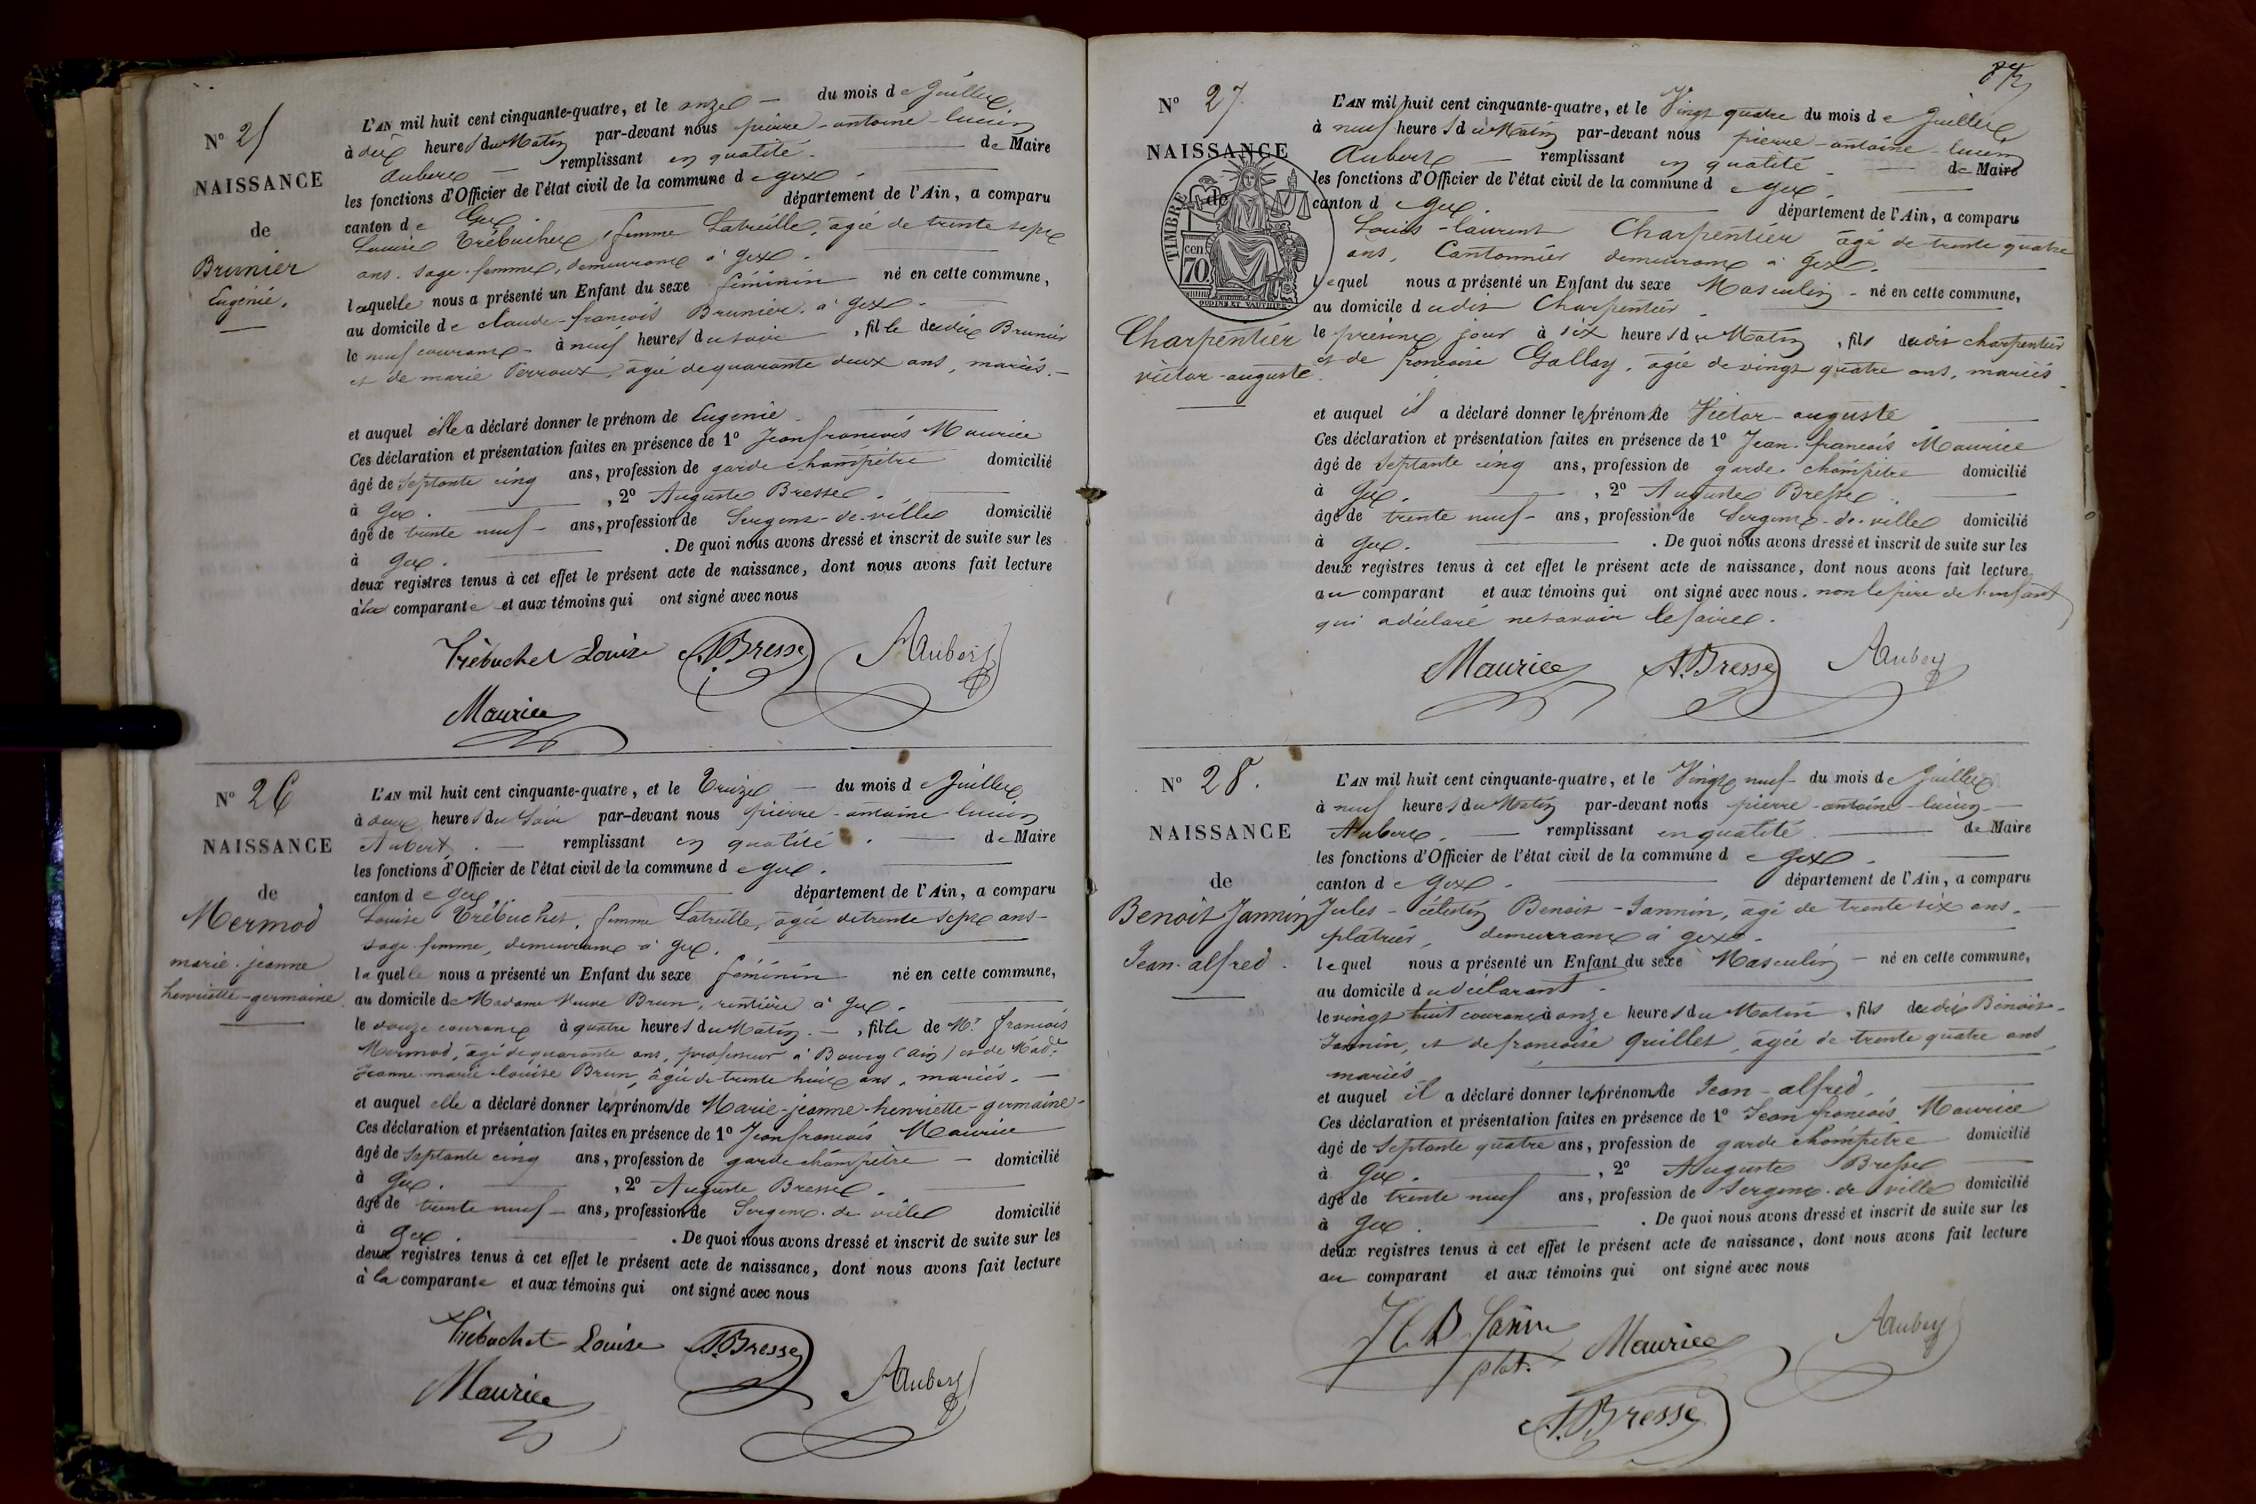 N° 25
NAISSANCE
de
Brunier
Eugénie.
L'AN mil huit cent cinquante-quatre, et le onze — du mois de Juillet
à dix heures du Matin par-devant nous pierre-antoine-lucien
Aubert — remplissant en qualité — de Maire
les fonctions d'Officier de l'état civil de la commune de gex.
canton de Gex — département de l'Ain, a comparu
Louise Trébuchet, femme Latreille, agée de trente sept
ans. sage-femme, demeurant à gex.
laquelle nous a présenté un Enfant du sexe féminin né en cette commune,
au domicile de claude-françois Brunier, à gex.
le neuf courant à neuf heures du soir, fille dudit Brunier
et de marie Perroux, agée de quarante deux ans, mariés.
et auquel elle a déclaré donner le prénom de Eugénie
Ces déclaration et présentation faites en présence de 1° Jean françois Maurice
âgé de Septante cinq ans, profession de garde champêtre domicilié
à Gex. , 2° Auguste Bresse.
âgé de trente neuf ans, profession de Sergent-de-ville domicilié
à gex. . De quoi nous avons dressé et inscrit de suite sur les
deux registres tenus à cet effet le présent acte de naissance, dont nous avons fait lecture
à la comparante et aux témoins qui ont signé avec nous
Trébuchet Louise A. Bresse Aubert
Maurice
N° 26
NAISSANCE
de
Mermod
marie-jeanne
henriette-germaine.
L'AN mil huit cent cinquante-quatre, et le Treize — du mois de Juillet
à deux heures du Soir par-devant nous pierre-antoine-lucien
Aubert. — remplissant en qualité. — de Maire
les fonctions d'Officier de l'état civil de la commune de gex.
canton de gex — département de l'Ain, a comparu
Louise Trébuchet, femme Latreille, agée de trente sept ans-
sage-femme, demeurant à gex.
laquelle nous a présenté un Enfant du sexe féminin né en cette commune,
au domicile de Madame Veuve Brun, rentière à gex.
le douze courant à quatre heures du Matin. —, fille de Mr françois
Mermod, âgé de quarante ans, professeur à Bourg (ain) et de Made
Jeanne-marie-louise Brun, âgée de trente huit ans, mariés. —
et auquel elle a déclaré donner les prénoms de Marie-jeanne-henriette-germaine-
Ces déclaration et présentation faites en présence de 1° Jean françois Maurice
âgé de Septante cinq ans, profession de garde champêtre — domicilié
à gex. , 2° Auguste Bresse.
âgé de trente neuf — ans, profession de Sergent-de-ville domicilié
à gex. . De quoi nous avons dressé et inscrit de suite sur les
deux registres tenus à cet effet le présent acte de naissance, dont nous avons fait lecture
à la comparante et aux témoins qui ont signé avec nous
Trébuchet Louise A. Bresse
Maurice Aubert
N° 27
NAISSANCE
de
TIMBRE
70 cen
Charpentier
victor-auguste.
L'AN mil huit cent cinquante-quatre, et le Vingt quatre du mois de Juillet
à neuf heures du Matin par-devant nous pierre-antoine-lucien
Aubert — remplissant en qualité — de Maire
les fonctions d'Officier de l'état civil de la commune de gex.
canton de gex. — département de l'Ain, a comparu
Louis-laurent Charpentier âgé de trente quatre
ans, Cantonnier demeurant à gex.
lequel nous a présenté un Enfant du sexe Masculin — né en cette commune,
au domicile dudit Charpentier
le présent jour à six heures du Matin, fils dudit charpentier
et de françoise Gallay, agée de vingt quatre ans, mariés.
et auquel il a déclaré donner les prénoms de Victor-auguste
Ces déclaration et présentation faites en présence de 1° Jean-françois Maurice
âgé de Septante cinq ans, profession de garde-champêtre domicilié
à Gex. , 2° Auguste Bresse.
âgé de trente neuf — ans, profession de Sergent-de-ville domicilié
à gex. . De quoi nous avons dressé et inscrit de suite sur les
deux registres tenus à cet effet le présent acte de naissance, dont nous avons fait lecture
au comparant et aux témoins qui ont signé avec nous. non le père de l'enfant
qui a déclaré ne savoir le faire.
Maurice A. Bresse Aubert
N° 28.
NAISSANCE
de
Benoit Jannin
Jean-alfred.
L'AN mil huit cent cinquante-quatre, et le Vingt neuf du mois de Juillet
à neuf heures du Matin par-devant nous pierre-antoine-lucien —
Aubert. — remplissant en qualité — de Maire
les fonctions d'Officier de l'état civil de la commune de gex.
canton de gex. — département de l'Ain, a comparu
Jules-célestin Benoit-Jannin, âgé de trente six ans. —
platrier, demeurant à gex.
lequel nous a présenté un Enfant du sexe Masculin — né en cette commune,
au domicile du déclarant.
le vingt huit courant à onze heures du Matin, fils dudit Benoit-
Jannin, et de françoise Quillet, agée de trente quatre ans,
mariés
et auquel il a déclaré donner les prénoms de Jean-alfred.
Ces déclaration et présentation faites en présence de 1° Jean françois Maurice
âgé de Septante quatre ans, profession de garde champêtre domicilié
à Gex. , 2° Auguste Bresse
âgé de trente neuf ans, profession de Sergent-de-ville domicilié
à gex. . De quoi nous avons dressé et inscrit de suite sur les
deux registres tenus à cet effet le présent acte de naissance, dont nous avons fait lecture
au comparant et aux témoins qui ont signé avec nous
J C B Janin Maurice Aubert
plat.
A. Bresse